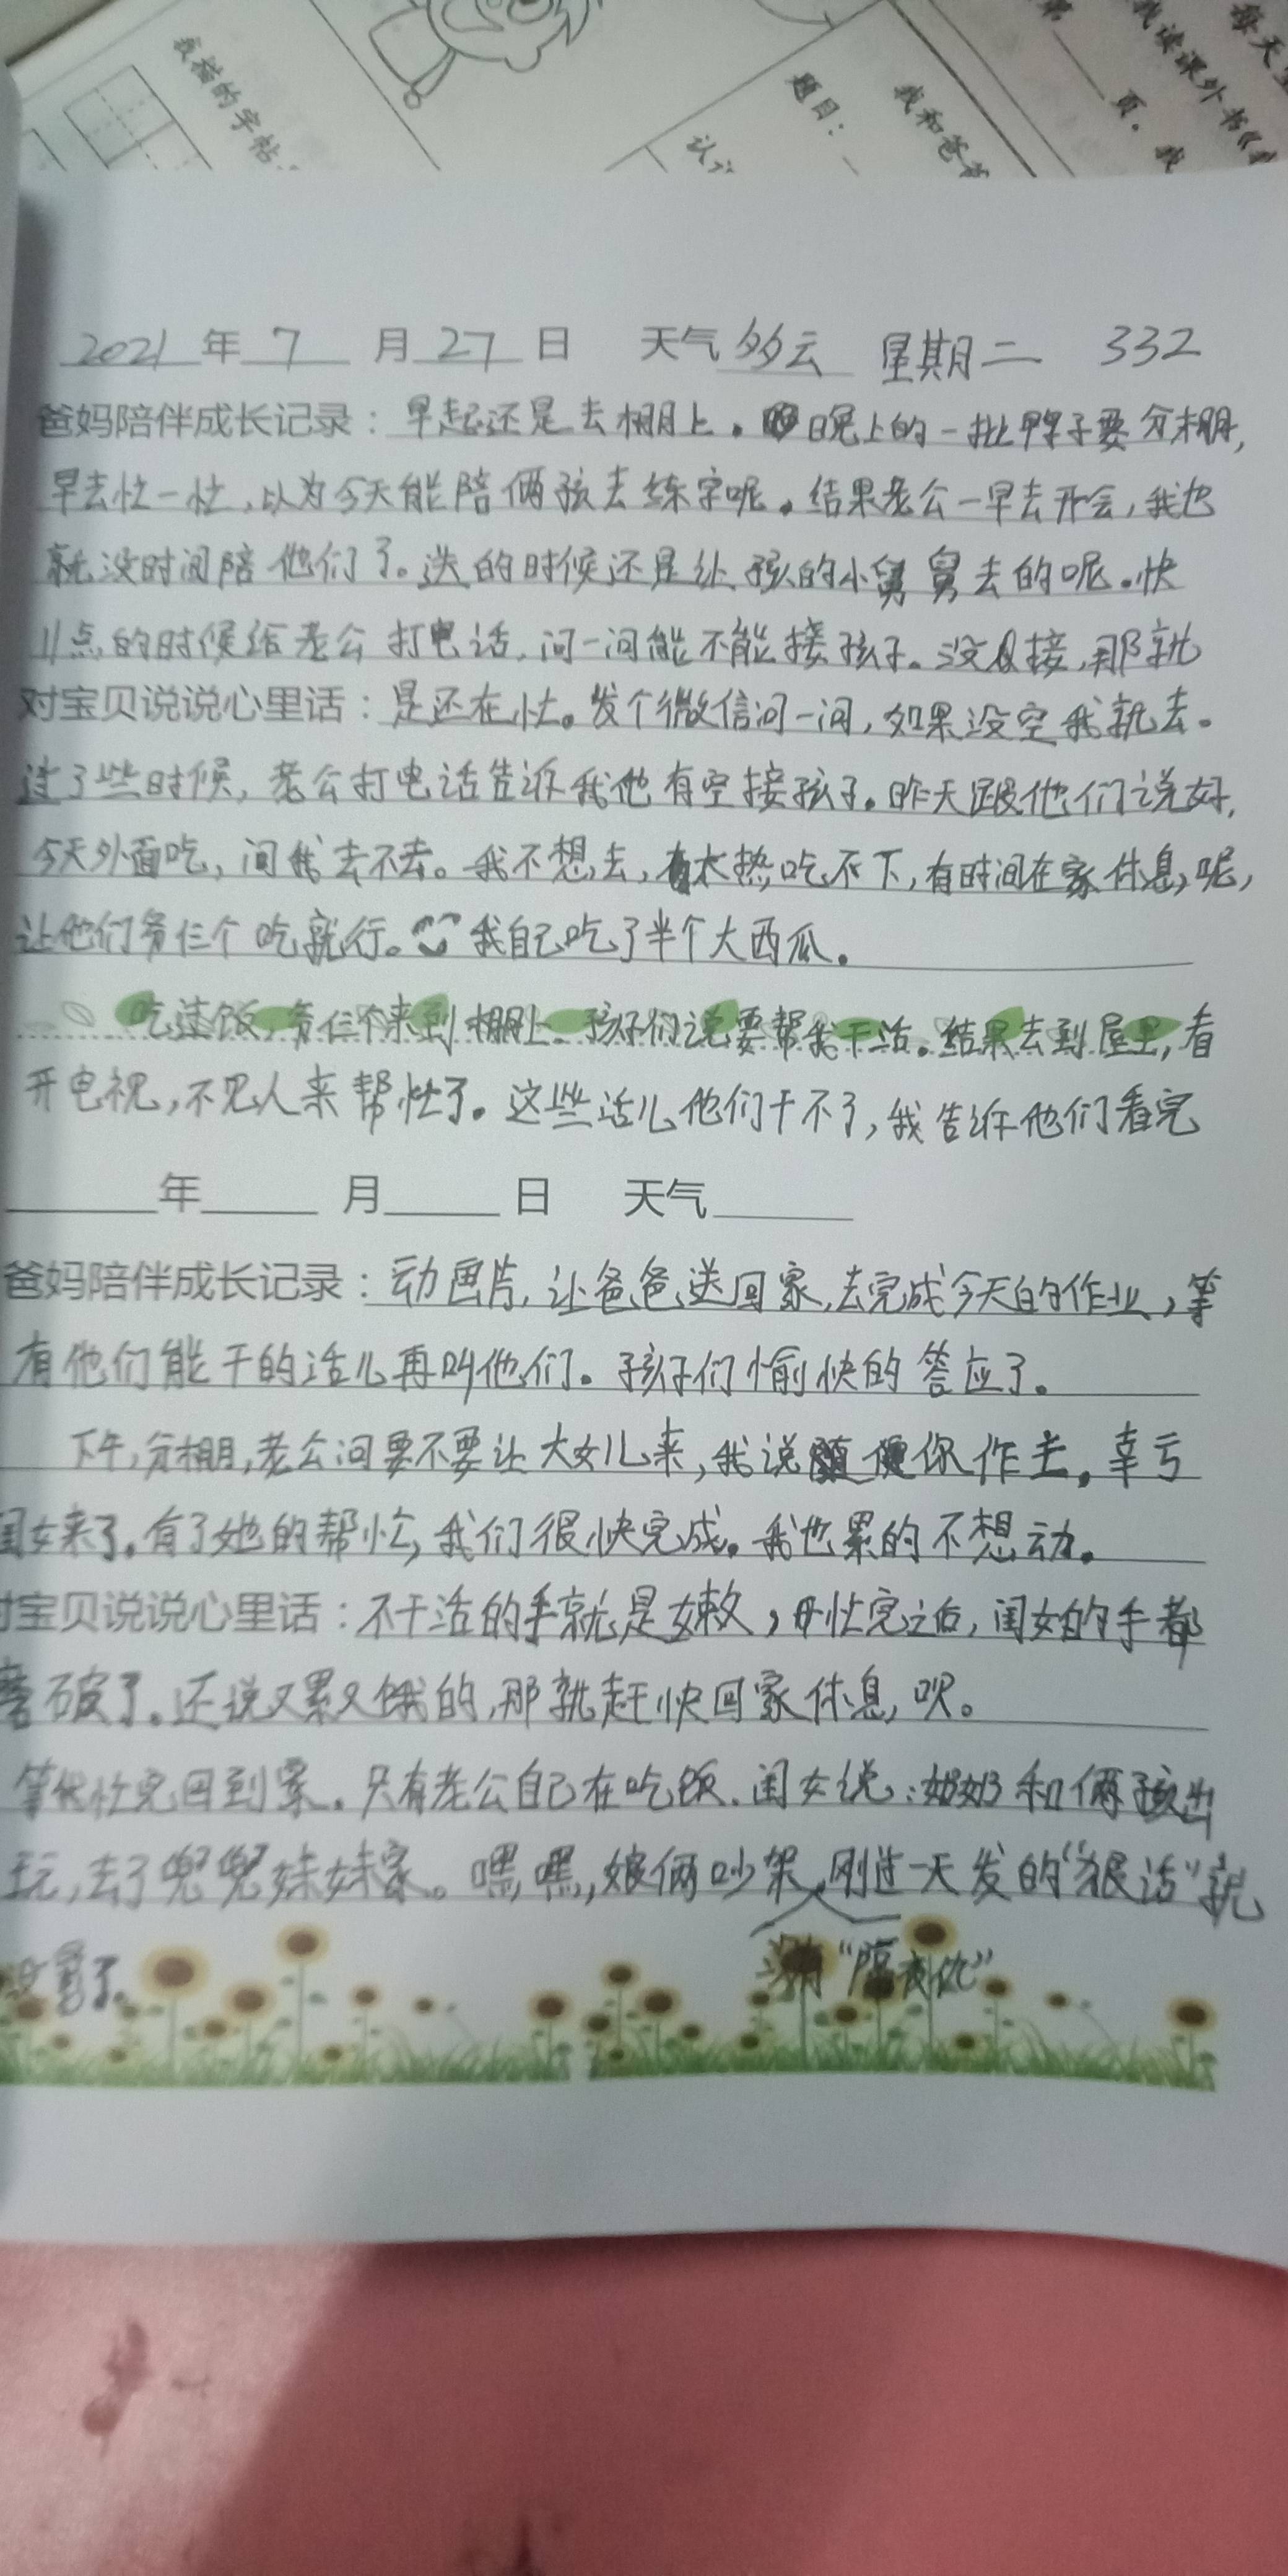 我描的字帖:
题目:
认
我和爸爸
第
页。我
我读课外书《
每天
2021年7月27日 天气多云 星期二 332
爸妈陪伴成长记录:早起还是去棚上。晚上的一批鸭子要分棚,
早去忙一忙,以为今天能陪俩孩去练字呢。结果老公一早去开会,我也
就没时间陪他们了。送的时候还是让孩的小舅舅去的呢。快
11点的时候给老公打电话,问一问能不能接孩子。没接,那就
对宝贝说说心里话:是还在忙。发个微信问一问,如果没空我就去。
过了些时候,老公打电话告诉我他有空接孩子。昨天跟他们说好,
今天外面吃,问我去不去。我不想去,太热吃不下,有时间在家休息呢,
让他们爷仨个吃就行。我自己吃了半个大西瓜。
吃过饭,爷仨个来到棚上。孩子们说要帮我干活。结果去到屋里,看
开电视,不见人来帮忙了。这些活儿他们干不了,我告诉他们看完
年 月 日 天气
爸妈陪伴成长记录:动画片,让爸爸送回家,去完成今天的作业,等
有他们能干的活儿再叫他们。孩子们愉快的答应了。
下午,分棚,老公问要不要让大女儿来,我说随便你作主。幸亏
闺女来了。有了她的帮忙,我们很快完成。我也累的不想动。
对宝贝说说心里话:不干活的手就是嫩,忙完之后,闺女的手都
磨破了。还说又累又饿的,那就赶快回家休息呗。
等我忙完回到家。只有老公自己在吃饭.闺女说:奶奶和俩孩出
玩,去了兜兜妹妹家。嘿嘿,娘俩吵架,刚过一天发的“狠话”就
没有“隔夜仇”
没算了。